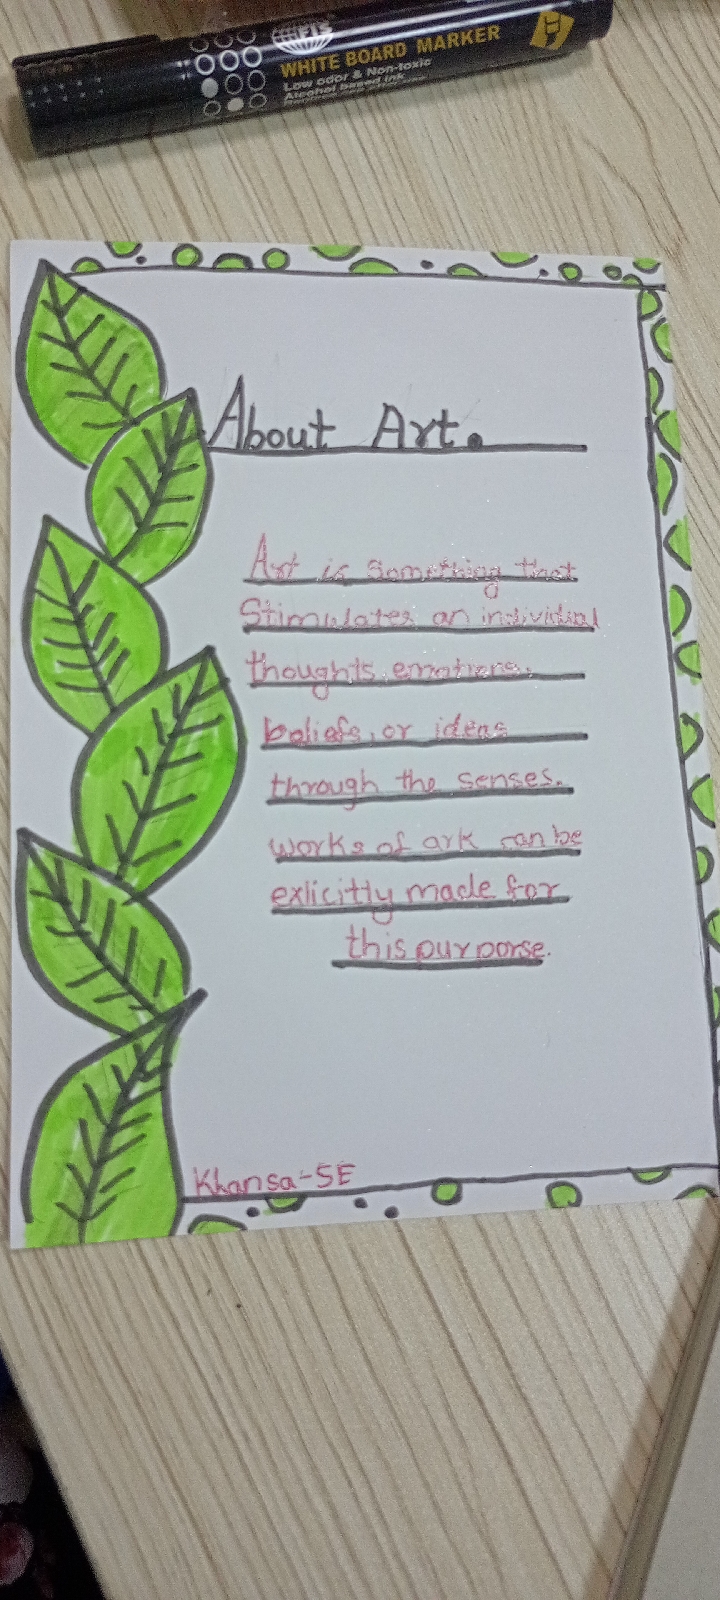 WHITE BOARD MARKER
Low odor & Non-toxic
Alcohol based ink
About Art.
Art is Something that
Stimulates an individual
thoughts, emotions.
beliefs, or ideas
through the senses.
works of ark can be
exlicitly made for
this purporse.
Khansa-5E